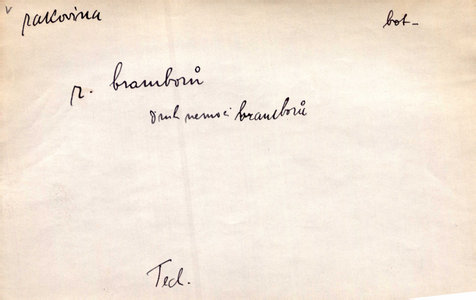 v
rakovina bot-
r. bramborů
Druh nemoci bramborů
Ted.